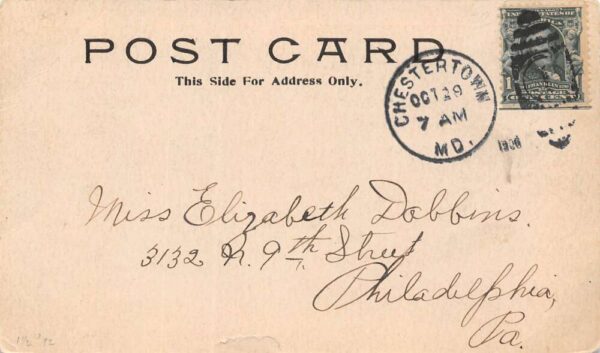 POST CARD
This Side For Address Only.
CHESTERTOWN
OCT 29
7 AM
MD.
1906
ONE CENT
Miss Elizabeth Dobbins.
3132 N. 9th Street
Philadelphia,
Pa.